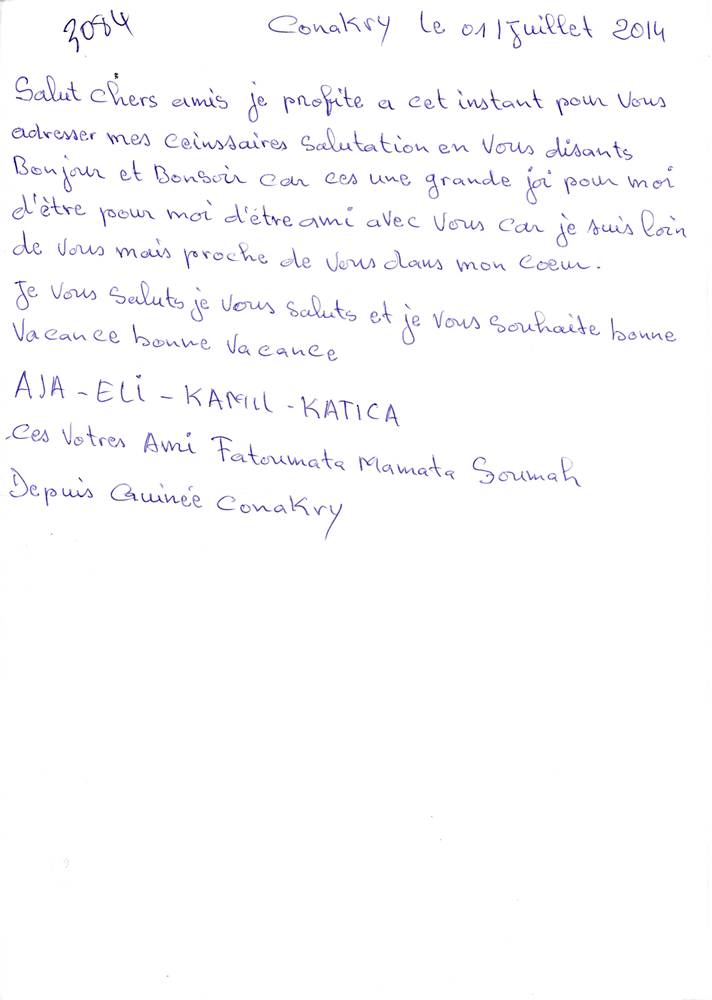 3084
Conakry le 01/Juillet 2014
Salut chers amis je profite a cet instant pour vous
adresser mes ceinssaires salutation en vous disants
Bonjour et Bonsoir car ces une grande joi pour moi
d'être pour moi d'être ami avec vous car je suis loin
de vous mais proche de vous dans mon coeur.
Je vous saluts je vous saluts et je vous souhaite bonne
vacance bonne vacance
AJA - ELI - KAMILL - KATICA
Ces votres Ami Fatoumata Mamata Soumah
Depuis Guinée Conakry